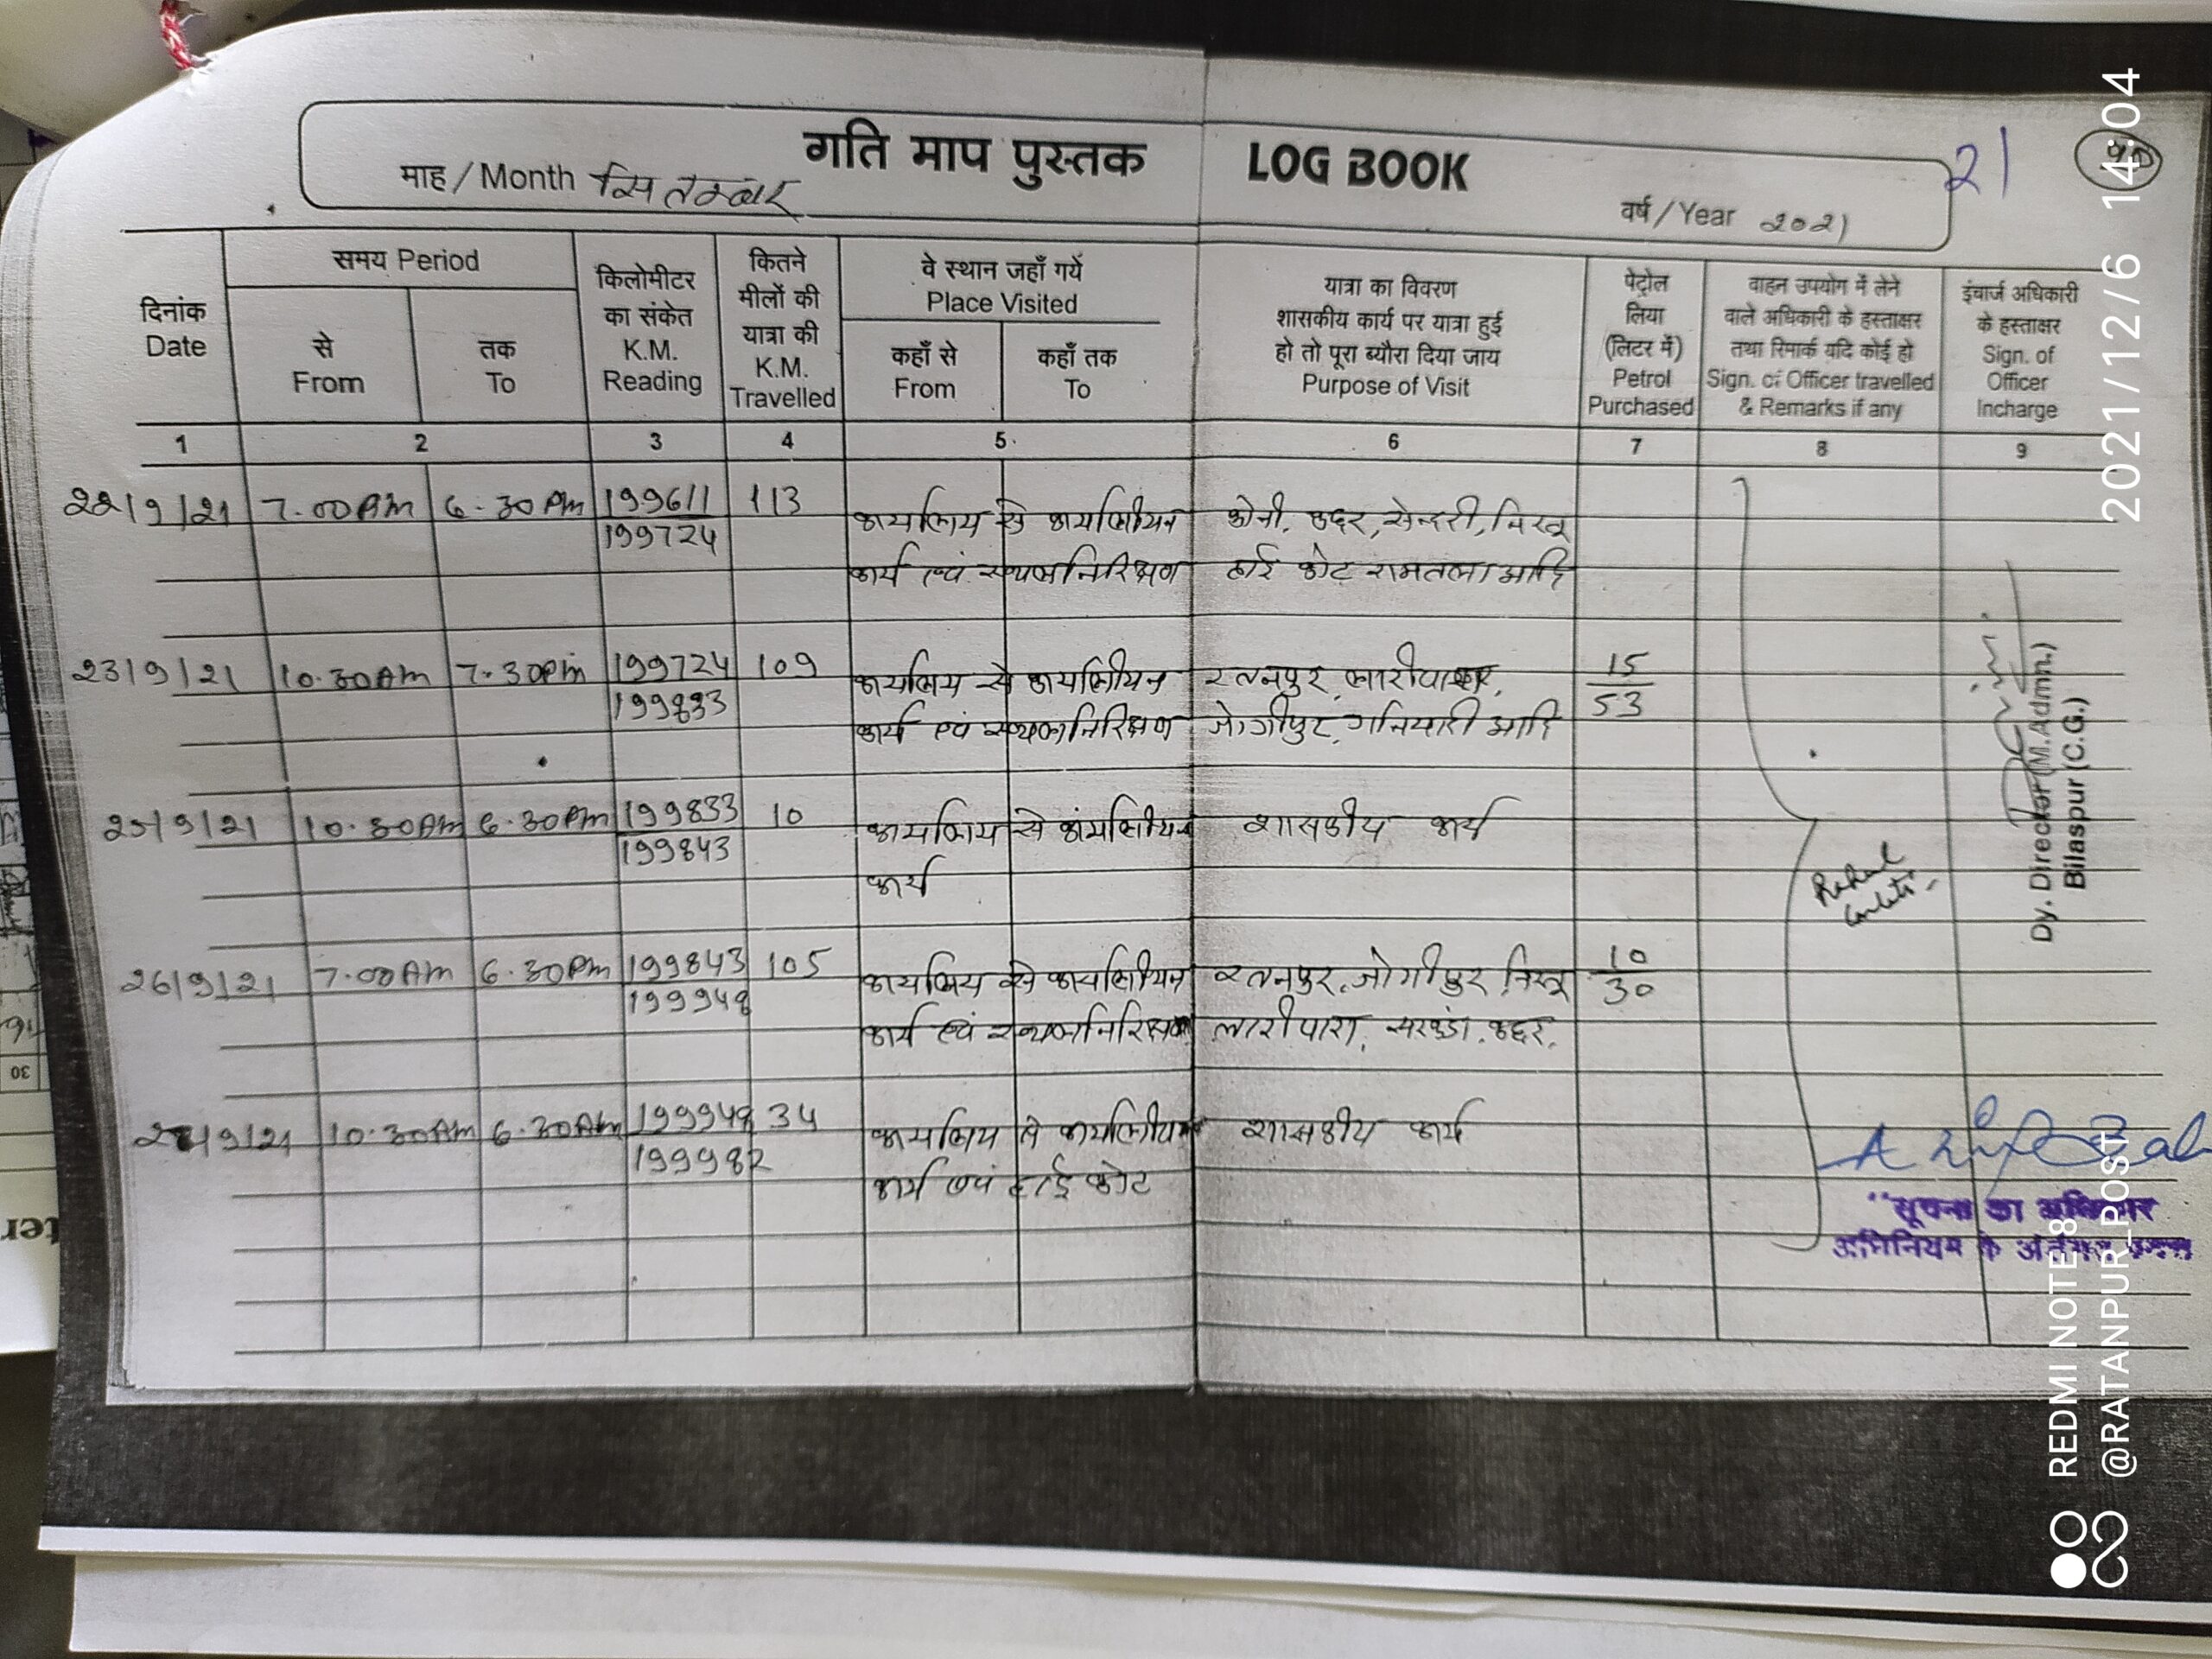 गति माप पुस्तक LOG BOOK
21
माह / Month सितम्बर
वर्ष / Year 2021
दिनांक
Date
समय Period
से
From
तक
To
किलोमीटर
का संकेत
K.M.
Reading
कितने
मीलों की
यात्रा की
K.M.
Travelled
वे स्थान जहाँ गयें
Place Visited
कहाँ से
From
कहाँ तक
To
यात्रा का विवरण
शासकीय कार्य पर यात्रा हुई
हो तो पूरा ब्यौरा दिया जाय
Purpose of Visit
पेट्रोल
लिया
(लिटर में)
Petrol
Purchased
वाहन उपयोग में लेने
वाले अधिकारी के हस्ताक्षर
तथा रिमार्क यदि कोई हो
Sign. of Officer travelled
& Remarks if any
इंचार्ज अधिकारी
के हस्ताक्षर
Sign. of
Officer
Incharge
1 2 3 4 5. 6 7 8 9
22/9/21 7.00 Am 6.30 Pm 199611 113 कार्यालय से कार्यालीयन कोनी, कछार, सेन्दरी,
199724
कार्य एवं स्थलनिरिक्षण हाई कोट रामतला आदि
23/9/21 10.30 Am 7.30 Pm 199724 109 कार्यालय से कार्यालीयन रतनपुर, 15
199833 53
कार्य एवं स्थलनिरिक्षण जोगीपुर, गनियारी आदि
25/9/21 10.30 Am 6.30 Pm 199833 10 कार्यालय से कार्यालीयन शासकीय कार्य
199843
कार्य
26/9/21 7.00 Am 6.30 Pm 199843 105 कार्यालय से कार्यालीयन रतनपुर, जोगीपुर, 10
199948 30
कार्य एवं स्थलनिरिक्षण लारीपारा, सरकंडा, कछार,
9/21 10.30 Am 6.30 199948 34 कार्यालय से कार्यालीयन शासकीय कार्य
199982
कार्य एवं हाई कोट
Rahul
Dy. Director (M.Admn.)
Bilaspur (C.G.)
"सूचना का अधिकार
अधिनियम के अंतर्गत
2021/12/6 14:04
REDMI NOTE 8
@RATANPUR_POST
30